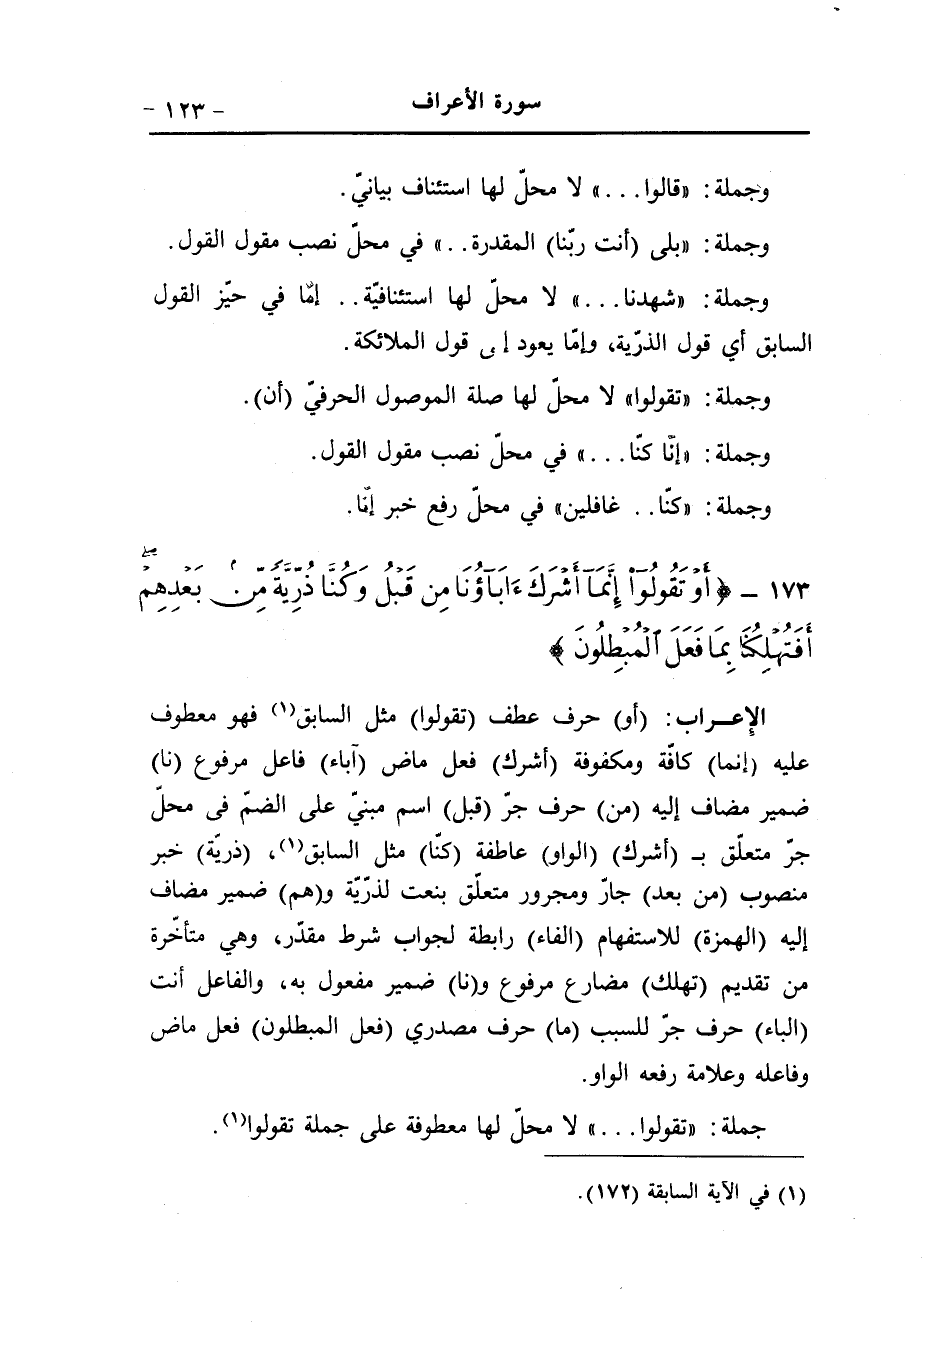 سورة الأعراف - ١٢٣ -
وجملة: «قالوا...» لا محلّ لها استئناف بيانيّ.
وجملة: «بلى (أنت ربّنا) المقدرة..» في محلّ نصب مقول القول.
وجملة: «شهدنا...» لا محلّ لها استئنافيّة.. إمّا في حيّز القول
السابق أي قول الذرّية، وإمّا يعود إلى قول الملائكة.
وجملة: «تقولوا» لا محلّ لها صلة الموصول الحرفيّ (أن).
وجملة: «إنّا كنّا...» في محلّ نصب مقول القول.
وجملة: «كنّا.. غافلين» في محلّ رفع خبر إنّا.
١٧٣ - ﴿أَوْ تَقُولُوٓا۟ إِنَّمَآ أَشْرَكَ ءَابَآؤُنَا مِن قَبْلُ وَكُنَّا ذُرِّيَّةً مِّنۢ بَعْدِهِمْ ۖ
أَفَتُهْلِكُنَا بِمَا فَعَلَ ٱلْمُبْطِلُونَ﴾
الإعراب: (أو) حرف عطف (تقولوا) مثل السابق(١) فهو معطوف
عليه (إنما) كافّة ومكفوفة (أشرك) فعل ماض (آباء) فاعل مرفوع (نا)
ضمير مضاف إليه (من) حرف جرّ (قبل) اسم مبنيّ على الضمّ في محلّ
جرّ متعلّق بـ (أشرك) (الواو) عاطفة (كنّا) مثل السابق(١)، (ذريّة) خبر
منصوب (من بعد) جارّ ومجرور متعلّق بنعت لذرّيّة و(هم) ضمير مضاف
إليه (الهمزة) للاستفهام (الفاء) رابطة لجواب شرط مقدّر، وهي متأخّرة
من تقديم (تهلك) مضارع مرفوع و(نا) ضمير مفعول به، والفاعل أنت
(الباء) حرف جرّ للسبب (ما) حرف مصدري (فعل المبطلون) فعل ماض
وفاعله وعلامة رفعه الواو.
جملة: «تقولوا...» لا محلّ لها معطوفة على جملة تقولوا(١).
(١) في الآية السابقة (١٧٢).